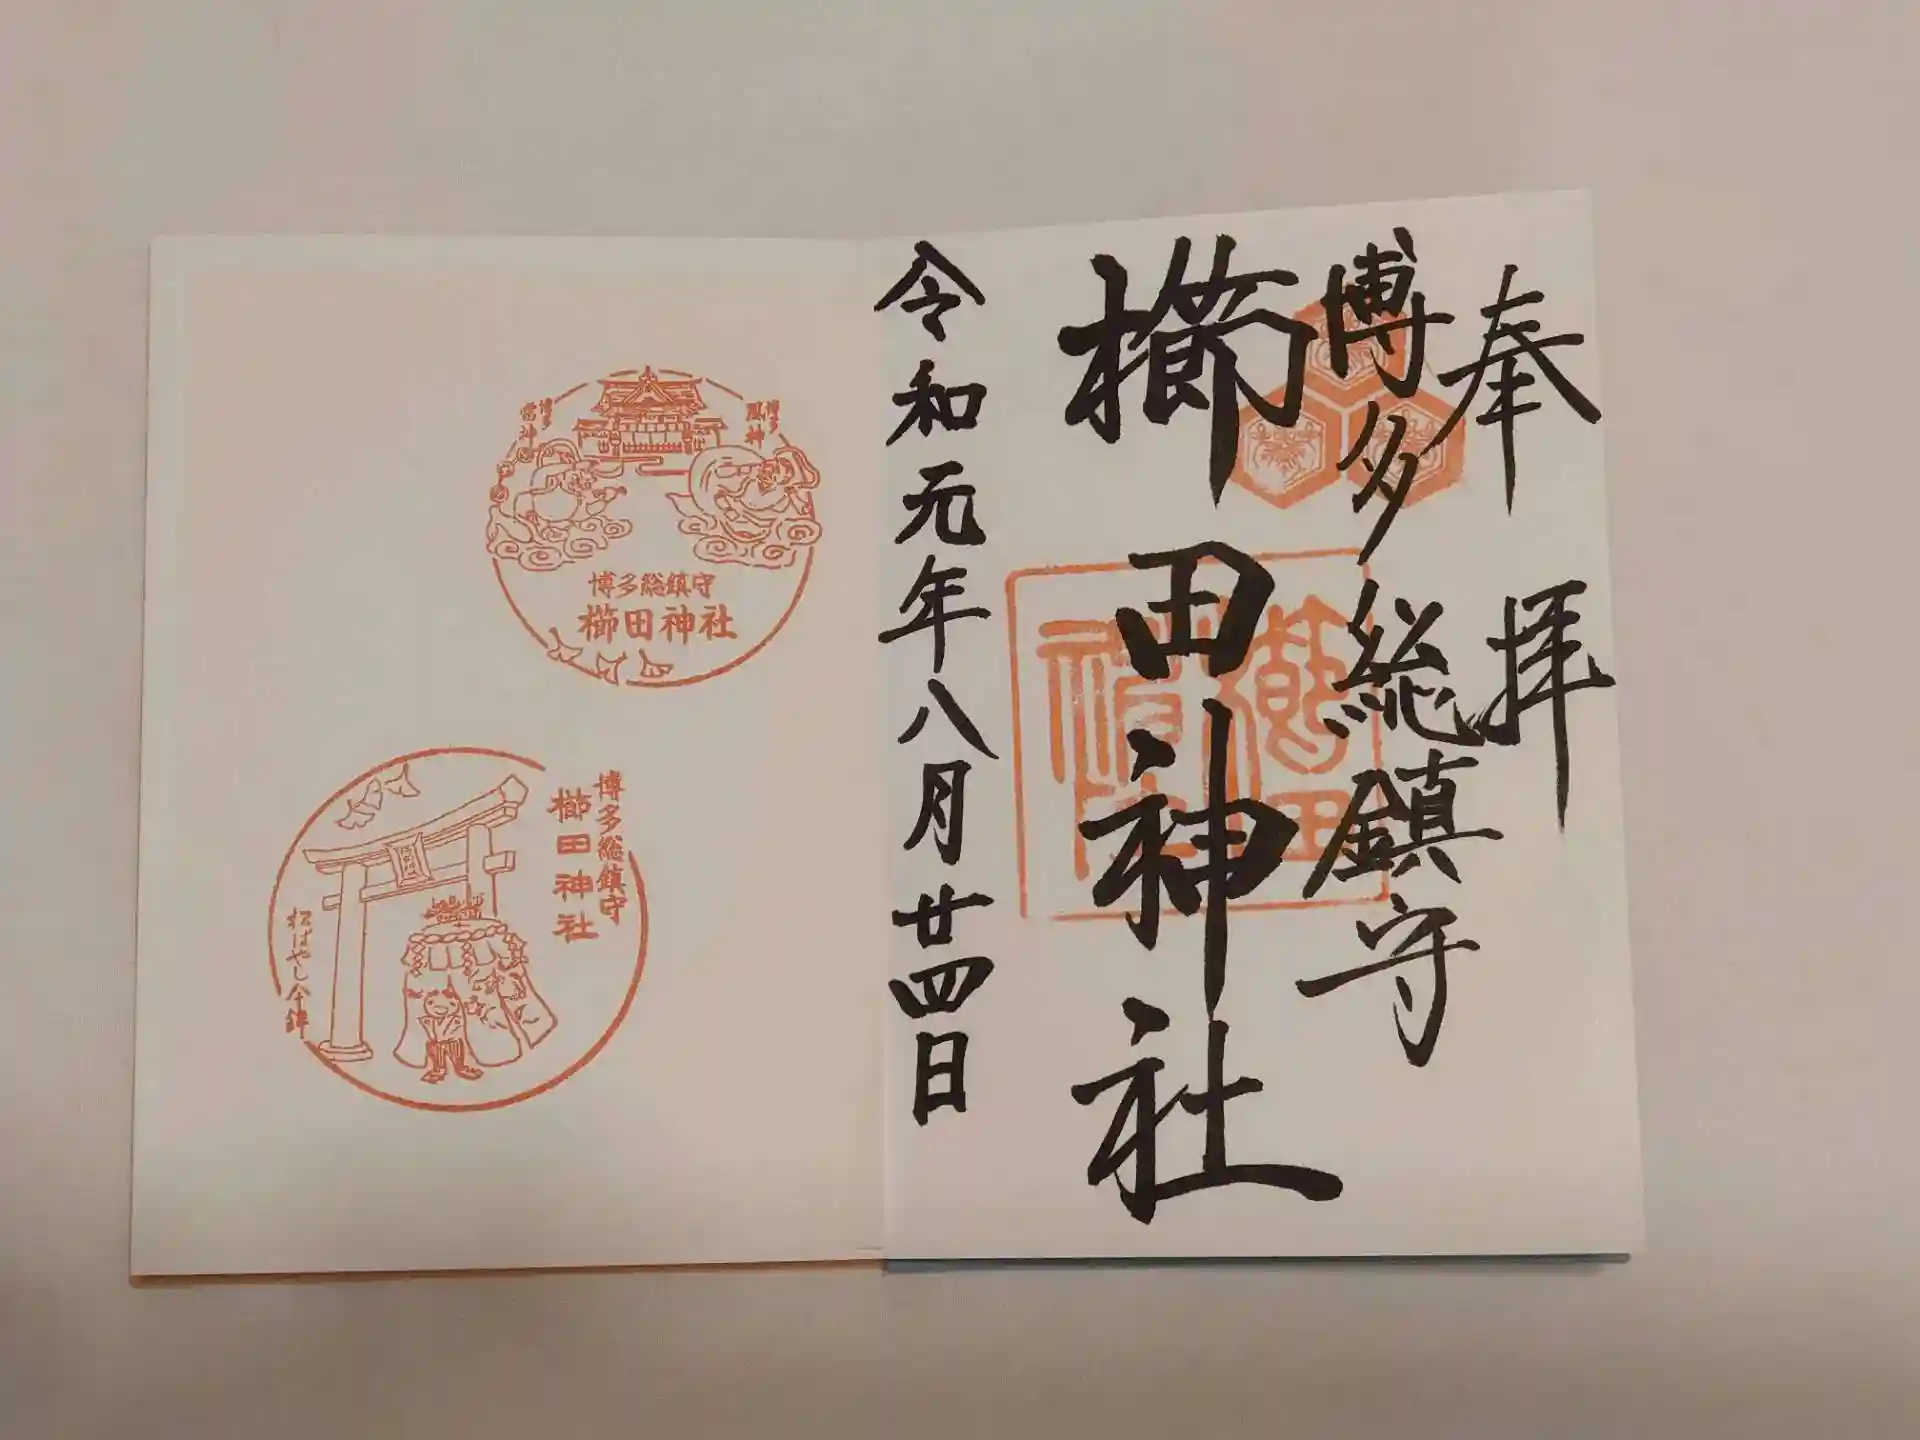 奉拝
博多総鎮守
櫛田神社
令和元年八月廿四日
櫛田
神社
博多
風神
博多
雷神
博多総鎮守
櫛田神社
博多総鎮守
櫛田神社
松ばやし傘鉾